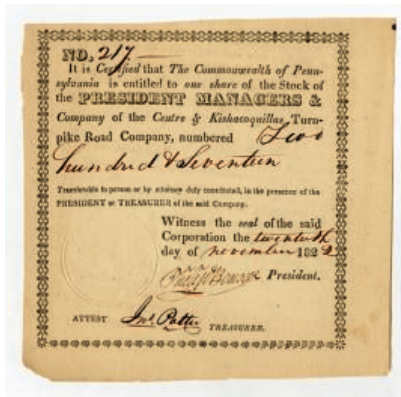 NO. 217.
It is Certified that The Commonwealth of Penn-
sylvania is entitled to one share of the Stock of
the PRESIDENT MANAGERS &
Company of the Centre & Kishacoquillas Turn-
pike Road Company, numbered Two
hundred & Seventeen
Transferable in person or by attorney duly constituted, in the presence of the
PRESIDENT or TREASURER of the said Company.
Witness the seal of the said
Corporation the twentieth
day of november 1822
President.
ATTEST Jno. Potter TREASURER.